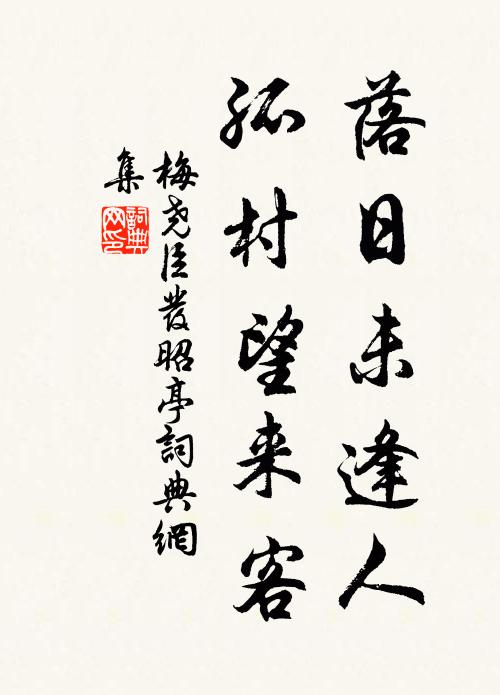 落日未逢人
孤村望来客
梅尧臣發昭亭詞典網
集
詞典
网印